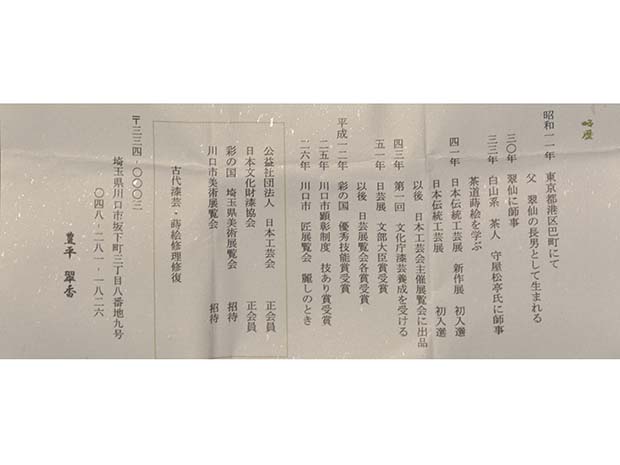 略歴
昭和一一年 東京都港区巴町にて
父 翠仙の長男として生まれる
三〇年 翠仙に師事
三三年 白山系 茶人 守屋松亭氏に師事
茶道蒔絵を学ぶ
四一年 日本伝統工芸展 新作展 初入選
日本伝統工芸展 初入選
以後 日本工芸会主催展覧会に出品
四三年 第一回 文化庁漆芸養成を受ける
五一年 日芸展 文部大臣賞受賞
以後 日芸展覧会各賞受賞
平成一二年 彩の国 優秀技能賞受賞
二五年 川口市顕彰制度 技あり賞受賞
二六年 川口市 匠展覧会 麗しのとき
公益社団法人 日本工芸会 正会員
日本文化財漆協会 正会員
彩の国 埼玉県美術展覧会 招待
川口市美術展覧会 招待
古代漆芸・蒔絵修理修復
〒三三四-〇〇〇三
埼玉県川口市坂下町三丁目八番地九号
〇四八-二八一-一八二六
豊平 翠香